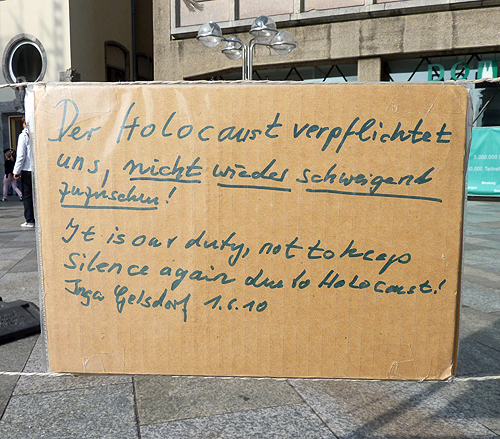 Der Holocaust verpflichtet
uns, nicht wieder schweigend
zuzusehen!
It is our duty, not to keep
silence again due to Holocaust!
Inga Gelsdorf 1.6.10
DOM